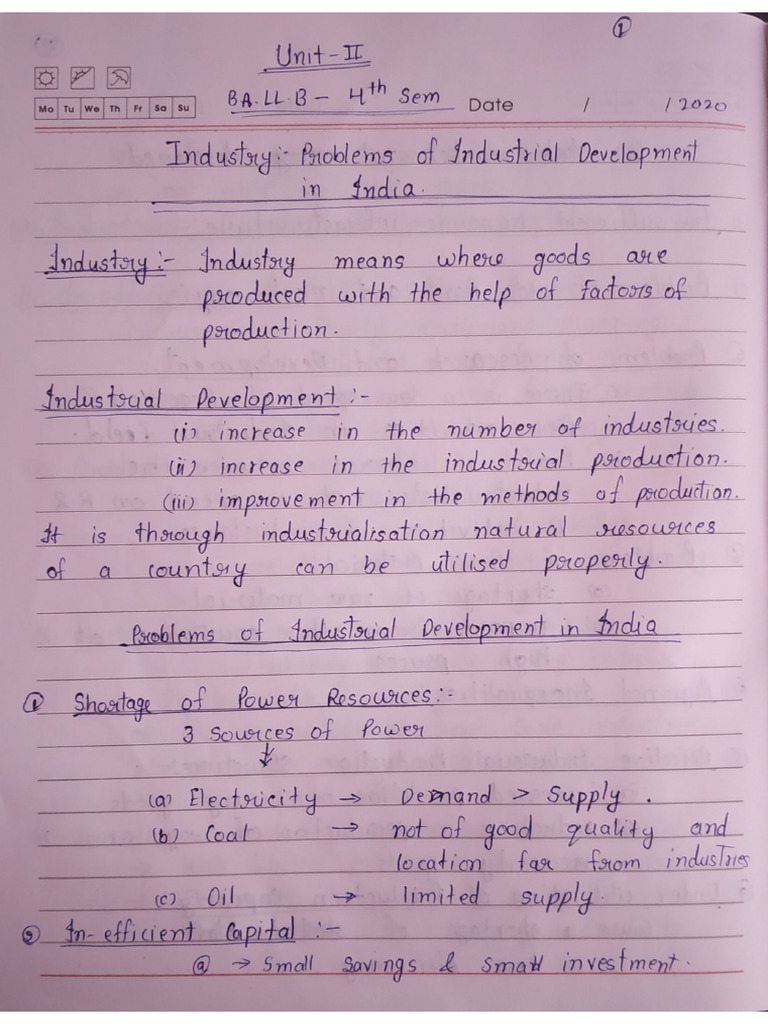 ①
Unit-II
Mo Tu We Th Fr Sa Su
BA.LL.B - 4th Sem
Date / / 2020
Industry:- Problems of Industrial Development
in India.
Industry:- Industry means where goods are
produced with the help of factors of
production.
Industrial Development:-
(i) increase in the number of industries.
(ii) increase in the industrial production.
(iii) improvement in the methods of production.
It is through industrialisation natural resources
of a country can be utilised properly.
Problems of Industrial Development in India
① Shortage of Power Resources:-
3 Sources of Power
↓
(a) Electricity → Demand > Supply.
(b) Coal → not of good quality and
location far from industries
(c) Oil → limited supply.
② In-efficient Capital:-
ⓐ → Small Savings & Small investment.